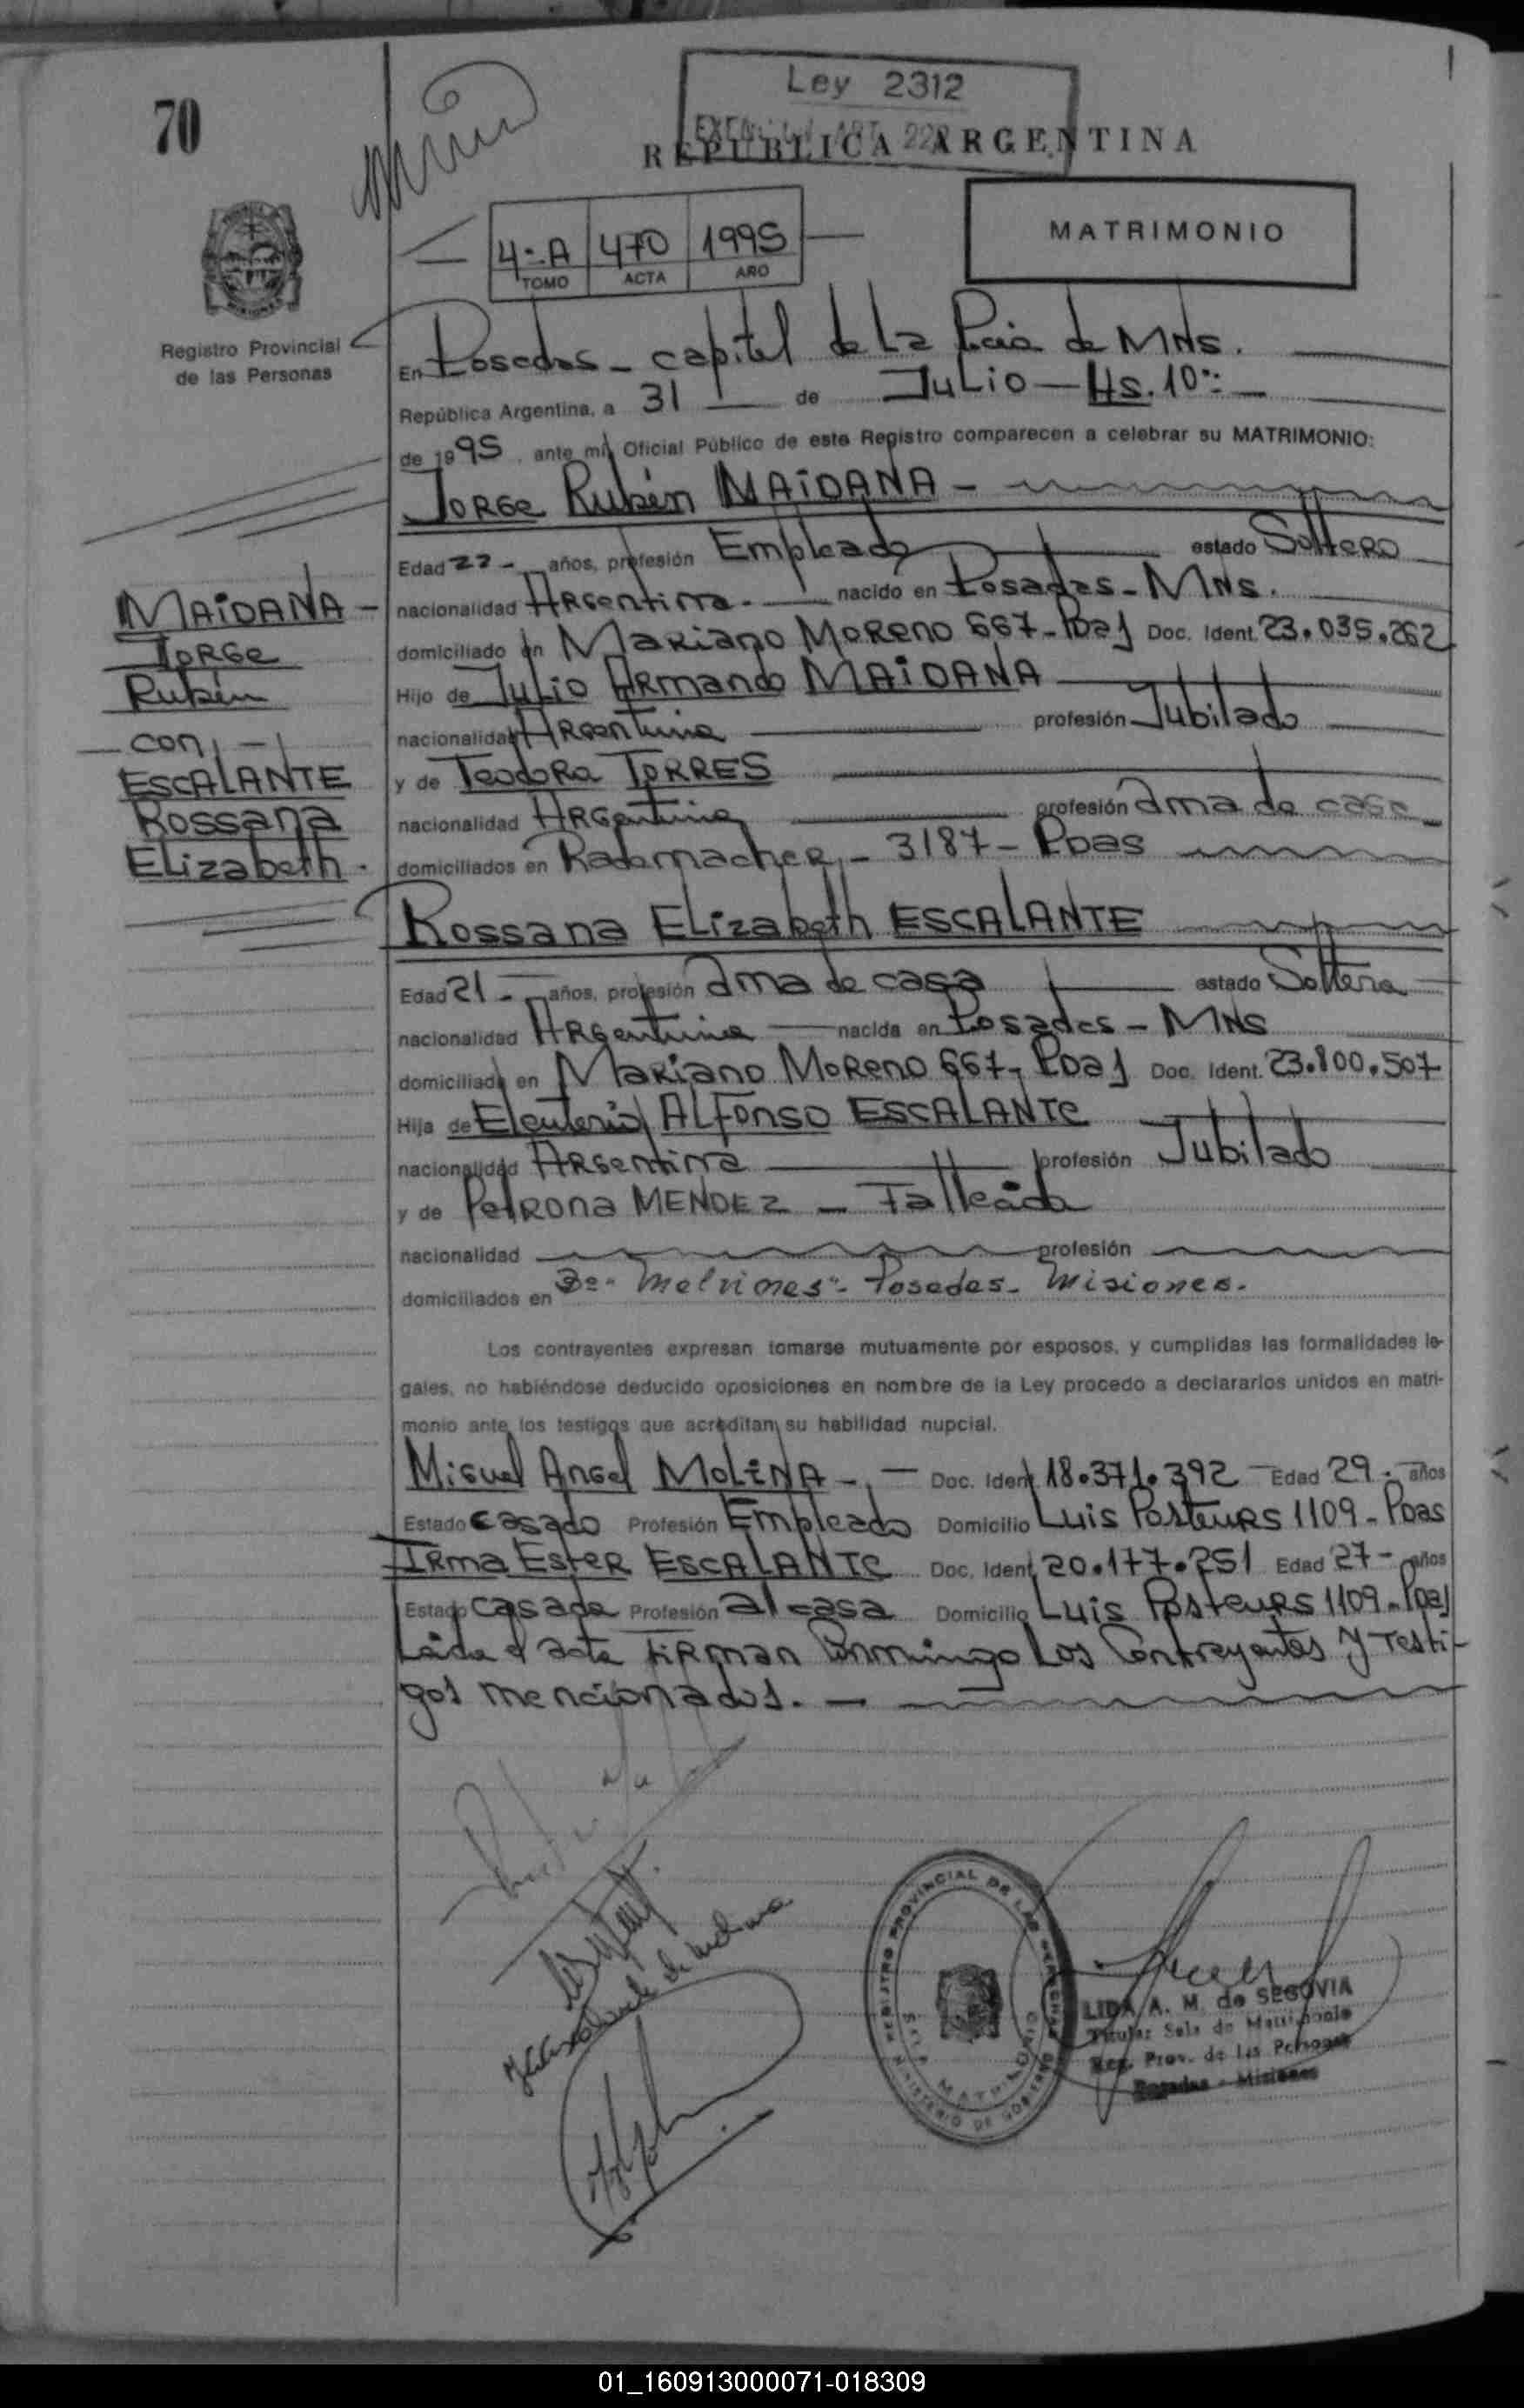 70
Ley 2312
REPUBLICA ARGENTINA
MATRIMONIO
4º A 470 1995
TOMO ACTA AÑO
Registro Provincial
de las Personas
En Posadas - capital de La Pcia de MNS.
República Argentina, a 31 de Julio - Hs. 10:
de 1995, ante mí, Oficial Público de este Registro comparecen a celebrar su MATRIMONIO:
Jorge Rubén MAIDANA -
Edad 22 - años, profesión Empleado estado Soltero
nacionalidad Argentina. nacido en Posadas - MNS.
domiciliado en Mariano Moreno 667 - Pdas Doc. Ident. 23.035.262
Hijo de Julio Armando MAIDANA
nacionalidad Argentina profesión Jubilado
y de Teodora TORRES
nacionalidad Argentina profesión ama de casa
domiciliados en Rademacher - 3187 - Pdas
MAIDANA -
Jorge
Rubén
con
ESCALANTE
Rossana
Elizabeth.
Rossana Elizabeth ESCALANTE
Edad 21 - años, profesión ama de casa estado Soltera
nacionalidad Argentina nacida en Posadas - MNS
domiciliada en Mariano Moreno 667 - Pdas Doc. Ident. 23.800.507
Hija de Eleuterio ALFONSO ESCALANTE
nacionalidad Argentina profesión Jubilado
y de Petrona MENDEZ - Fallecida
nacionalidad profesión
domiciliados en Bº "Malvinas" - Posadas - Misiones.
Los contrayentes expresan tomarse mutuamente por esposos, y cumplidas las formalidades le-
gales, no habiéndose deducido oposiciones en nombre de la Ley procedo a declararlos unidos en matri-
monio ante los testigos que acreditan su habilidad nupcial.
Miguel Angel MOLINA - Doc. Ident. 18.371.392 Edad 29. años
Estado casado Profesión Empleado Domicilio Luis Pasteurs 1109 - Pdas
Irma Ester ESCALANTE Doc. Ident. 20.177.251 Edad 27 - años
Estado casada Profesión a/casa Domicilio Luis Pasteurs 1109 - Pdas
Leída el acta firman conmingo Los Contrayentes y Testi-
gos mencionados. -
REGISTRO PROVINCIAL DE LAS PERSONAS
MINISTERIO DE GOBIERNO
LIDA A. M. de SEGOVIA
Titular Sala de Matrimonio
Reg. Prov. de las Personas
Posadas - Misiones
01_160913000071-018309